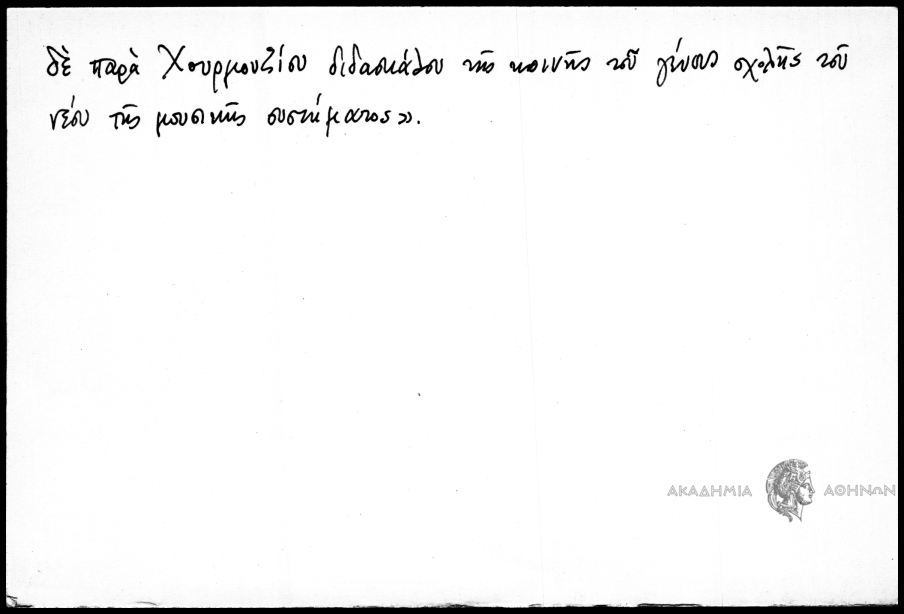 δὲ παρὰ Χουρμουζίου διδασκάλου τῆς κοινῆς τοῦ γένους σχολῆς τοῦ
νέου τῆς μουσικῆς συστήματος».
ΑΚΑΔΗΜΙΑ ΑΘΗΝΩΝ